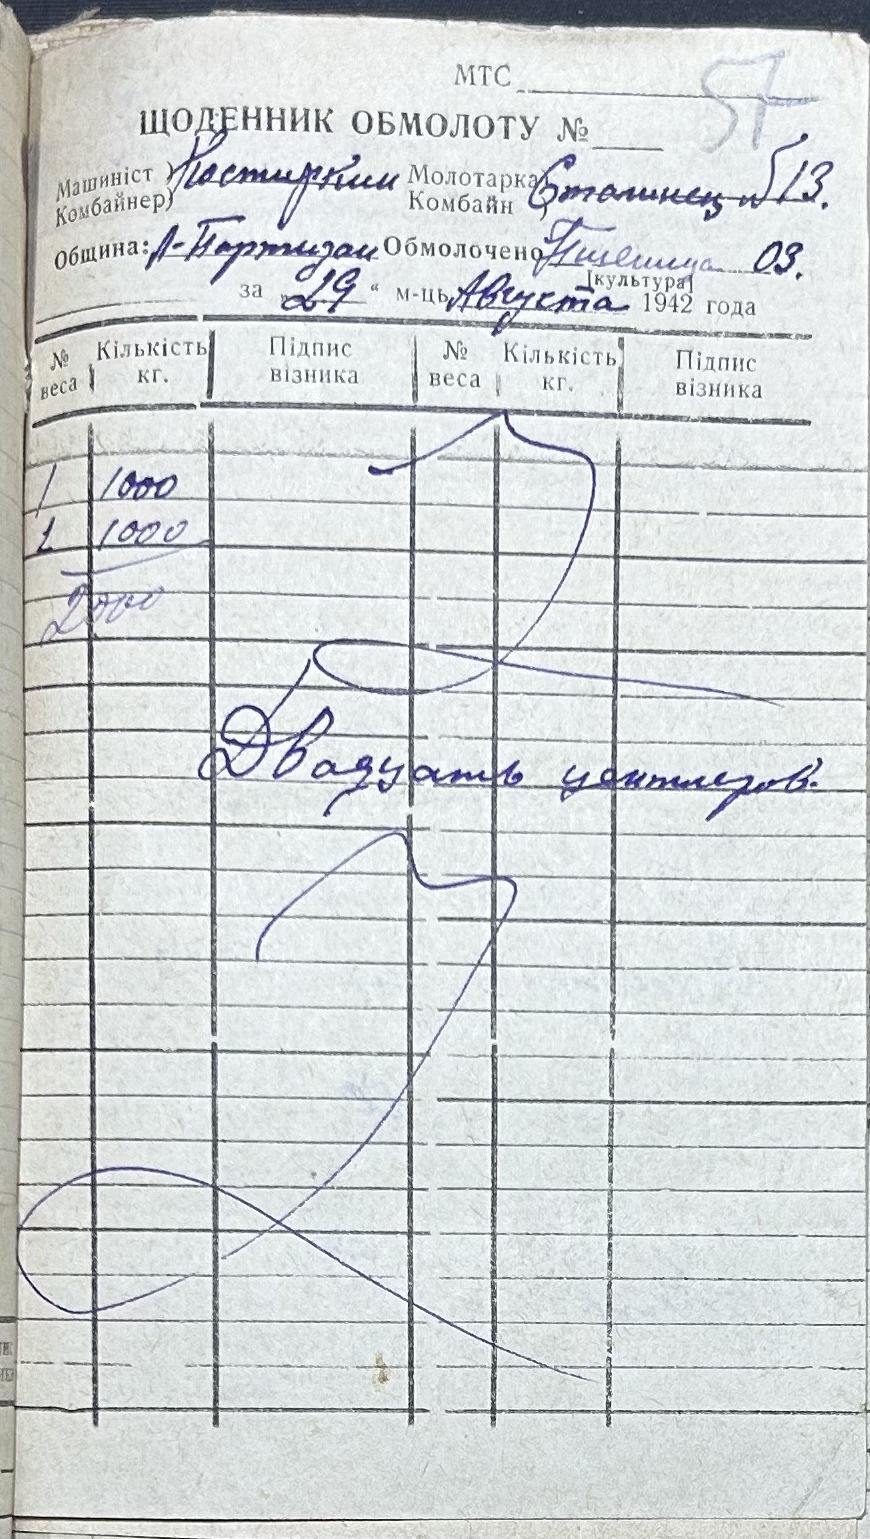 57
МТС
ЩОДЕННИК ОБМОЛОТУ №
Машиніст Молотарка
Комбайнер) Комбайн ) Сталинец №13.
Община: Л-Партизан Обмолочено Пшеница 03.
[культура]
за „29“ м-ць Августа 1942 года
№ веса Кількість кг. Підпис візника № веса Кількість кг. Підпис візника
1 1000
2 1000
2000
Двадцать центнеров.